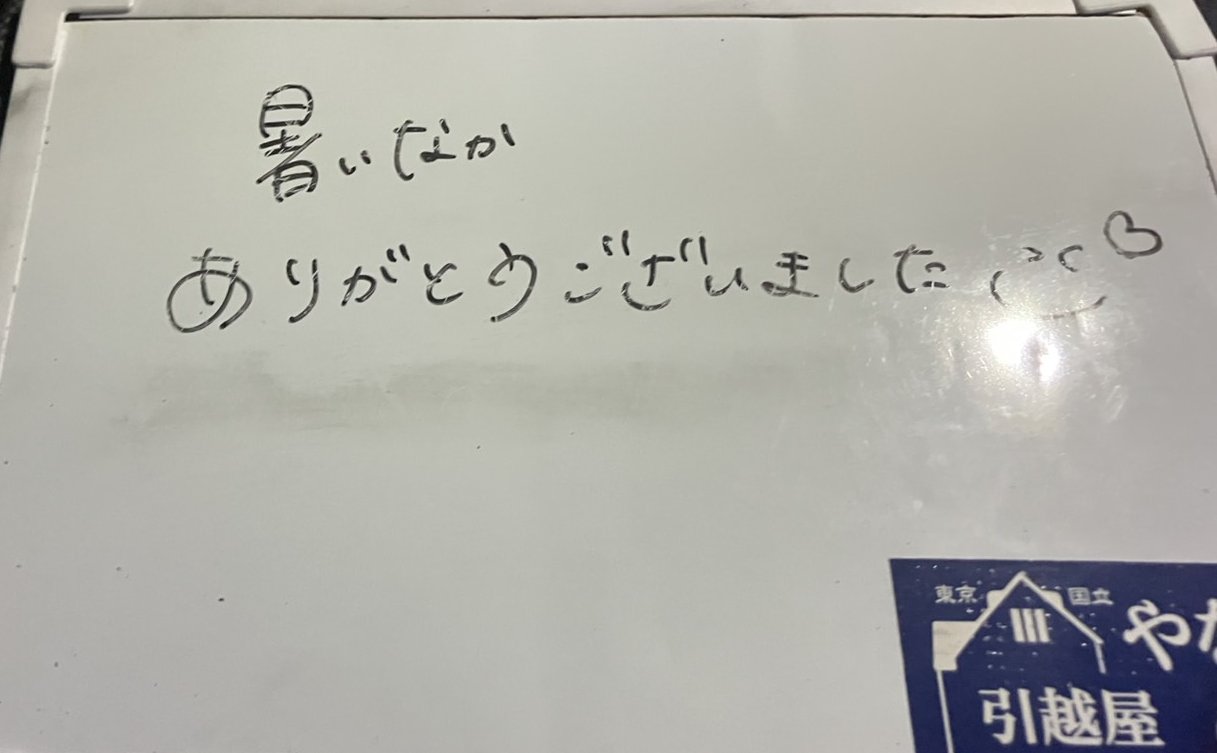 暑いなか
ありがとうございました
東京 国立
引越屋